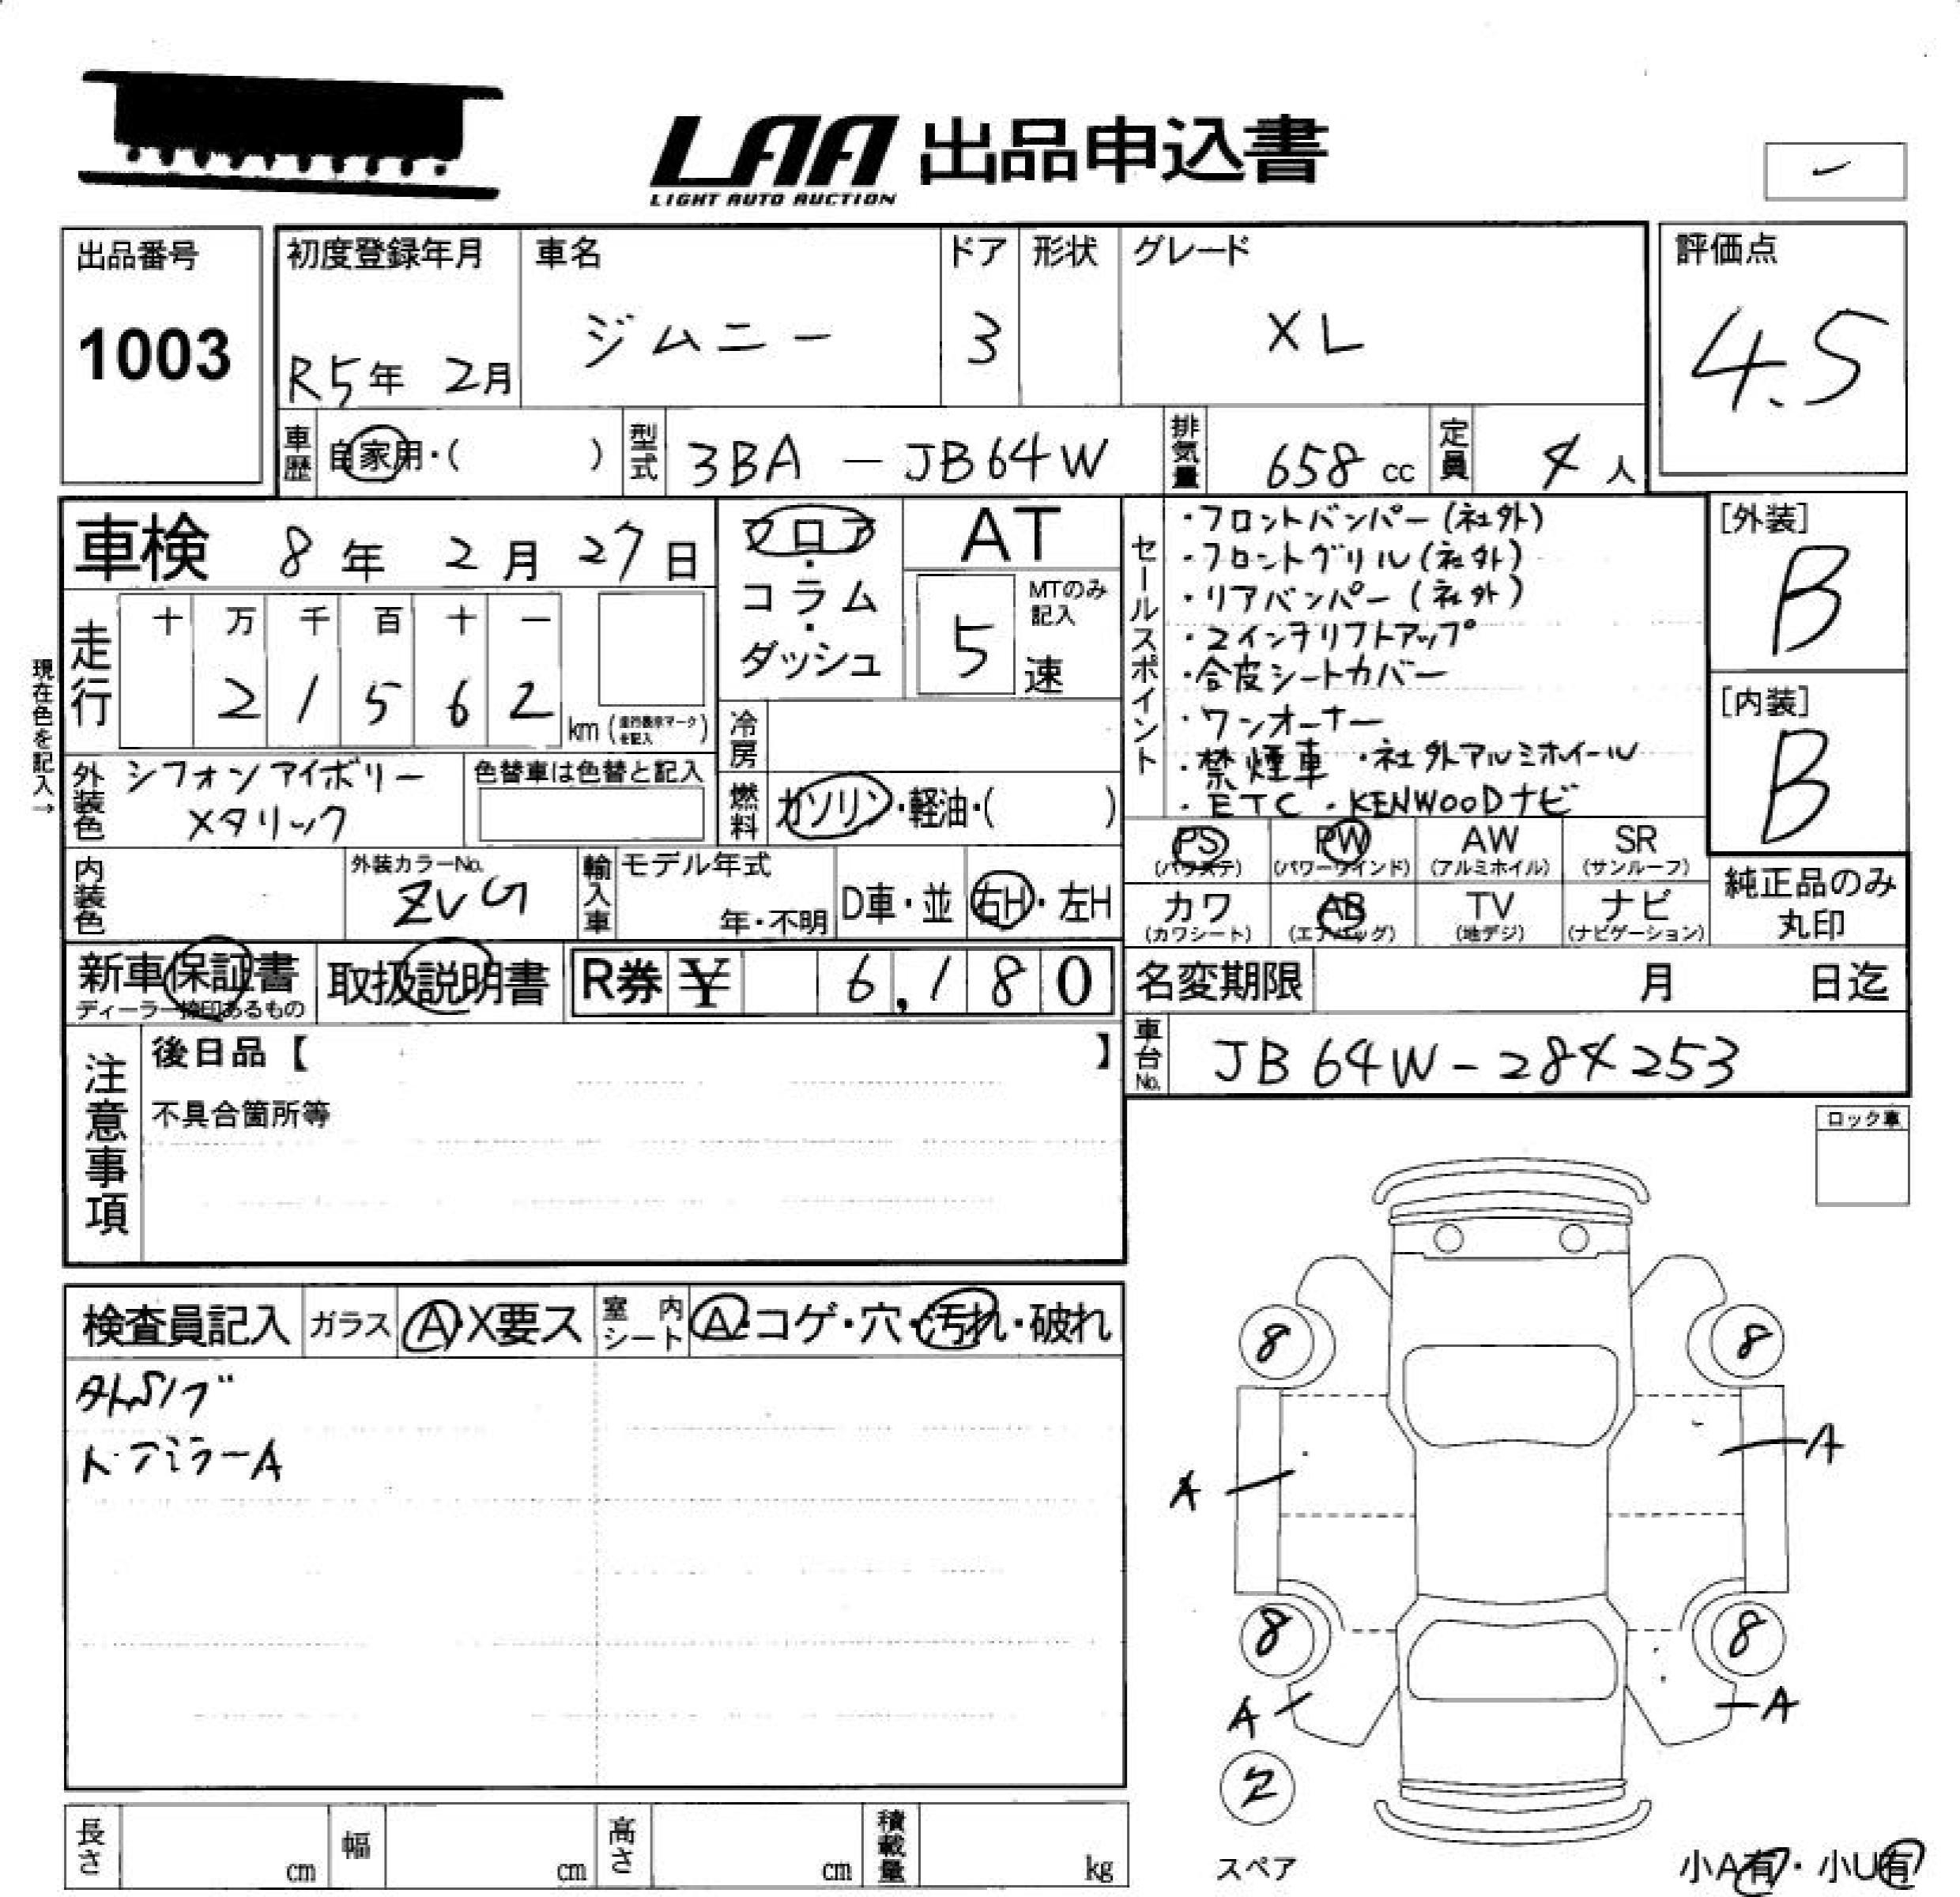 LAA 出品申込書
LIGHT AUTO AUCTION
出品番号
1003
初度登録年月
R5年 2月
車名
ジムニー
ドア
3
形状
グレード
XL
評価点
4.5
車歴
自家用・( )
型式
3BA - JB64W
排気量
658 cc
定員
4 人
車検 8年 2月 27日
フロア
・
コラム
・
ダッシュ
AT
5 速
MTのみ
記入
セールスポイント
・フロントバンパー(社外)
・フロントグリル(社外)
・リアバンパー(社外)
・2インチリフトアップ
・合皮シートカバー
・ワンオーナー
・禁煙車 ・社外アルミホイール
・ETC ・KENWOODナビ
[外装]
B
[内装]
B
現在色を記入→
走行
十 万 千 百 十 一
2 1 5 6 2
km (走行表示マークを記入)
冷房
外装色
シフォンアイボリー
メタリック
色替車は色替と記入
燃料
ガソリン・軽油・( )
PS
(パワステ)
PW
(パワーウインド)
AW
(アルミホイル)
SR
(サンルーフ)
カワ
(カワシート)
AB
(エアバッグ)
TV
(地デジ)
ナビ
(ナビゲーション)
純正品のみ
丸印
内装色
外装カラーNo.
ZVG
輸入車
モデル年式
年・不明
D車・並
右H・左H
新車保証書
ディーラー捺印あるもの
取扱説明書
R券 ¥ 6,180
名変期限 月 日迄
車台No.
JB64W-284253
注意事項
後日品【 】
不具合箇所等
ロック車
検査員記入
ガラス
A・X要ス
室内
シート
A・コゲ・穴・汚れ・破れ
ドアミラーA
8
8
A
A
8
8
A
A
2
スペア
長さ cm
幅 cm
高さ cm
積載量 kg
小A有・小U有